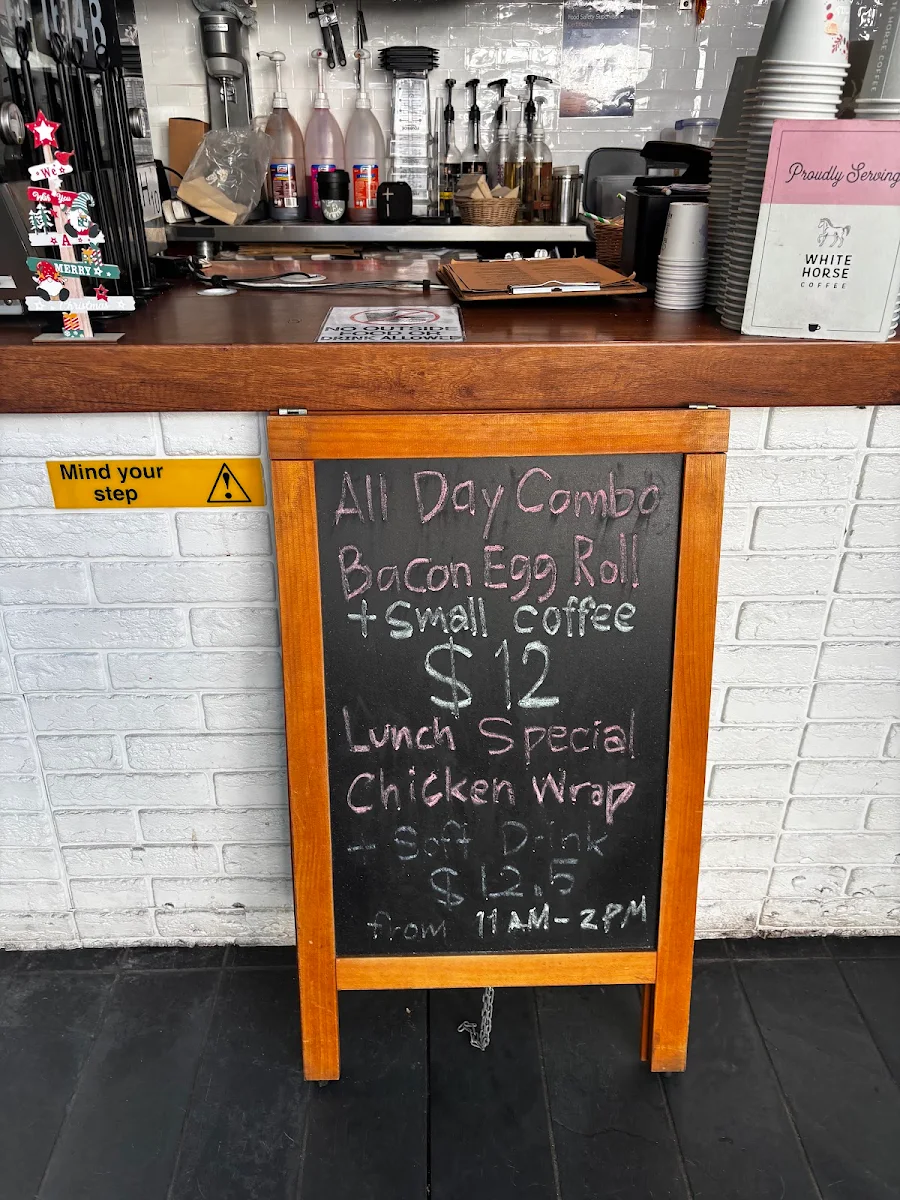 We
Wish You
A
MERRY
Christmas
Proudly Serving
WHITE
HORSE
COFFEE
NO OUTSIDE
FOOD OR
DRINK ALLOWED
Mind your
step
All Day Combo
Bacon Egg Roll
+ Small coffee
$12
Lunch Special
Chicken Wrap
+ Soft Drink
$12.5
from 11AM-2PM